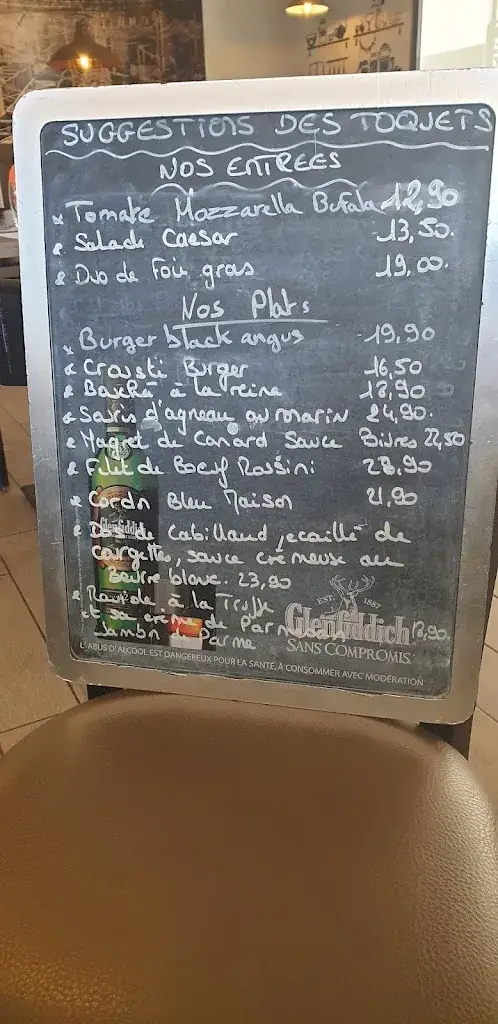 SUGGESTIONS DES TOQUETS
NOS ENTREES
x Tomate Mozzarella Bufala 12,90
Salade Caesar 13,50.
Duo de Foie gras 19,00.
Nos Plats
x Burger black angus 19,90
Crousti Burger 16,50
à la reine 18,90
d'agneau au marin 24,90.
Magret de Canard Sauce 22,50
Filet de Boeuf Rossini 28,90
Cordn Bleu Maison 21,90
Dos de Cabillaud ecaillé de
courgettes, sauce crémeuse au
Beurre blanc. 23,90
à la Truffe
et sa crème de
Jambon de Parme
Glenfiddich
EST. 1887
Glenfiddich
SANS COMPROMIS.
L'ABUS D'ALCOOL EST DANGEREUX POUR LA SANTÉ, À CONSOMMER AVEC MODÉRATION